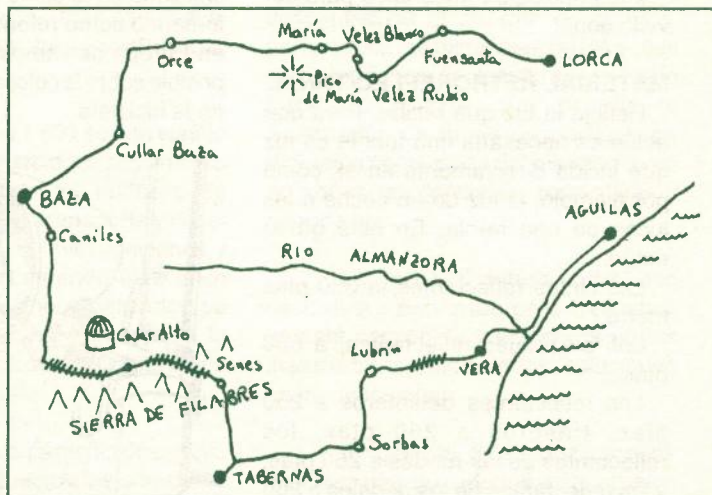 María
Velez Blanco
Orce
Fuensanta
LORCA
Pico
de María
Velez Rubio
Cullar Baza
BAZA
AGUILAS
Caniles
RIO ALMANZORA
Calar Alto
Senes
Lubrín
VERA
SIERRA DE FILABRES
Sorbas
TABERNAS